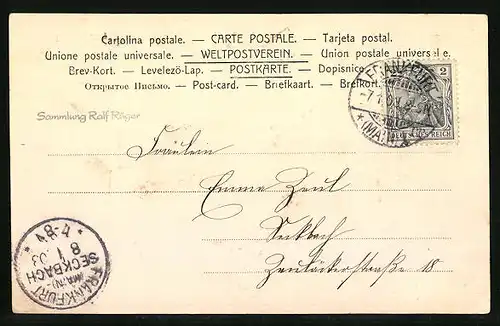 Cartolina postale. — CARTE POSTALE. — Tarjeta postal.
Unione postale universale. — WELTPOSTVEREIN. — Union postale universelle.
Brev-Kort. — Levelezö-Lap. — POSTKARTE. — Dopisnice
Открытое Письмо. — Post-card. — Briefkaart. — Brefkort.
2
FRANKFURT
(MAIN)
REICH
Sammlung Ralf Röger
Fräulein
Emma Zeul
Seckbach
FRANKFURT
(MAIN)
SECKBACH
8 1 03